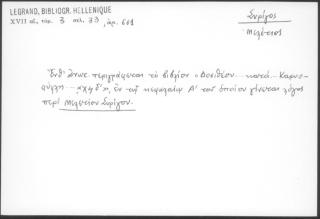 LEGRAND, BIBLIOGR. HELLENIQUE
XVII αἰ, τομ. 3 σελ. 33, ἀρ. 601
Συρίγος
Μελέτιος
Ἔνθ' ἄνω περιγράφεται τὸ βιβλίον "Δοσιθέου κατὰ Καρυο-
φύλλη ͵αχϟδʹ", ἐν τῷ κεφαλαίῳ Α' τοῦ ὁποίου γίνεται λόγος
περὶ Μελετίου Συρίγου.